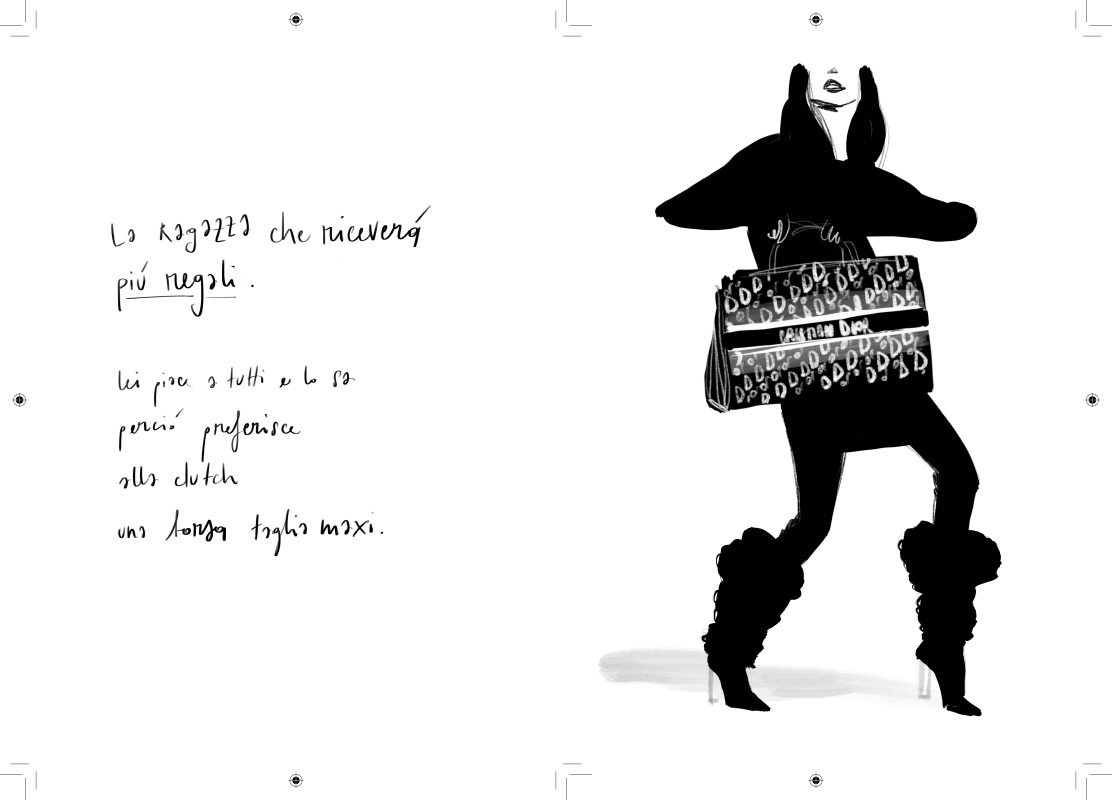 La Ragazza che riceverá
piú regali.
lei piace a tutti e lo sa
perció preferisce
alla clutch
una borsa taglia maxi.
DIOR